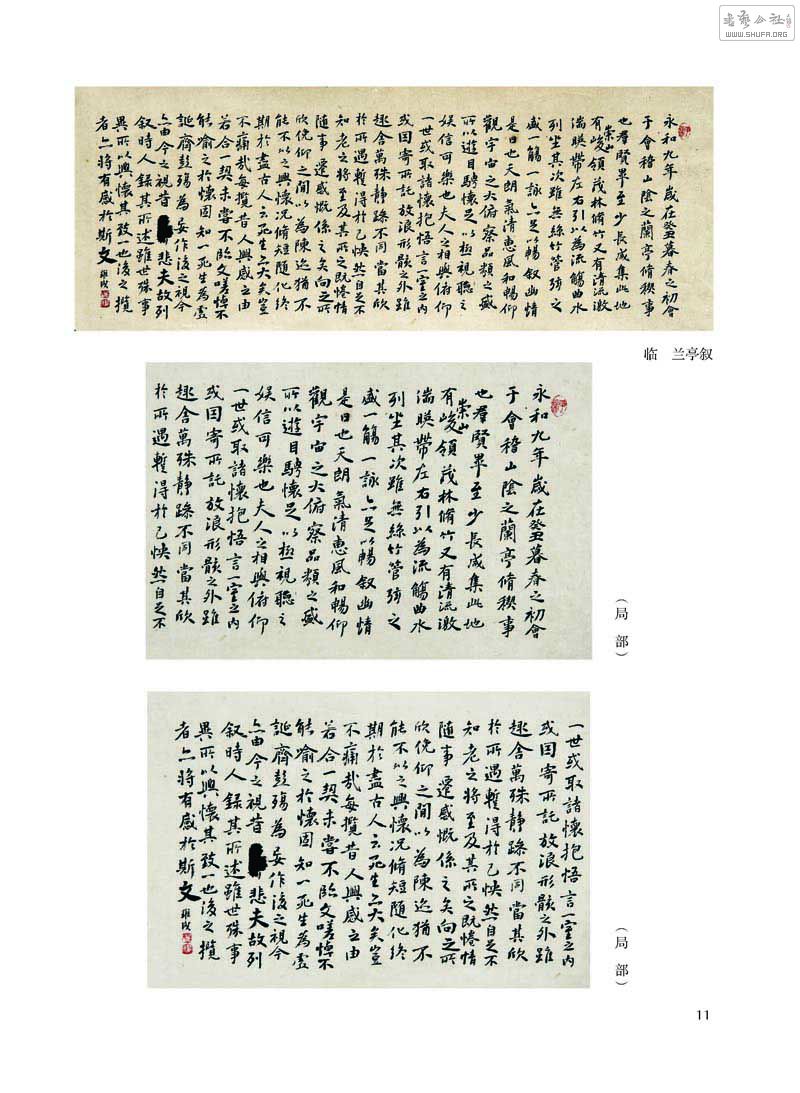 書藝公社
WWW.SHUFA.ORG
永和九年歲在癸丑暮春之初會
于會稽山陰之蘭亭脩稧事
也羣賢畢至少長咸集此地
有崇山峻領茂林脩竹又有清流激
湍暎帶左右引以為流觴曲水
列坐其次雖無絲竹管弦之
盛一觴一詠亦足以暢叙幽情
是日也天朗氣清惠風和暢仰
觀宇宙之大俯察品類之盛
所以遊目騁懷足以極視聽之
娛信可樂也夫人之相與俯仰
一世或取諸懷抱悟言一室之內
或因寄所託放浪形骸之外雖
趣舍萬殊靜躁不同當其欣
於所遇蹔得於己怏然自足不
知老之將至及其所之既惓情
隨事遷感慨係之矣向之所
欣俛仰之間以為陳迹猶不
能不以之興懷況脩短隨化終
期於盡古人云死生亦大矣豈
不痛哉每攬昔人興感之由
若合一契未嘗不臨文嗟悼不
能喻之於懷固知一死生為虛
誕齊彭殤為妄作後之視今
亦由今之視昔悲夫故列
叙時人錄其所述雖世殊事
異所以興懷其致一也後之攬
者亦將有感於斯文
临 兰亭叙
永和九年歲在癸丑暮春之初會
于會稽山陰之蘭亭脩稧事
也羣賢畢至少長咸集此地
有崇山峻領茂林脩竹又有清流激
湍暎帶左右引以為流觴曲水
列坐其次雖無絲竹管弦之
盛一觴一詠亦足以暢叙幽情
是日也天朗氣清惠風和暢仰
觀宇宙之大俯察品類之盛
所以遊目騁懷足以極視聽之
娛信可樂也夫人之相與俯仰
一世或取諸懷抱悟言一室之內
或因寄所託放浪形骸之外雖
趣舍萬殊靜躁不同當其欣
於所遇蹔得於己怏然自足不
（局部）
一世或取諸懷抱悟言一室之內
或因寄所託放浪形骸之外雖
趣舍萬殊靜躁不同當其欣
於所遇蹔得於己怏然自足不
知老之將至及其所之既惓情
隨事遷感慨係之矣向之所
欣俛仰之間以為陳迹猶不
能不以之興懷況脩短隨化終
期於盡古人云死生亦大矣豈
不痛哉每攬昔人興感之由
若合一契未嘗不臨文嗟悼不
能喻之於懷固知一死生為虛
誕齊彭殤為妄作後之視今
亦由今之視昔悲夫故列
叙時人錄其所述雖世殊事
異所以興懷其致一也後之攬
者亦將有感於斯文
（局部）
11